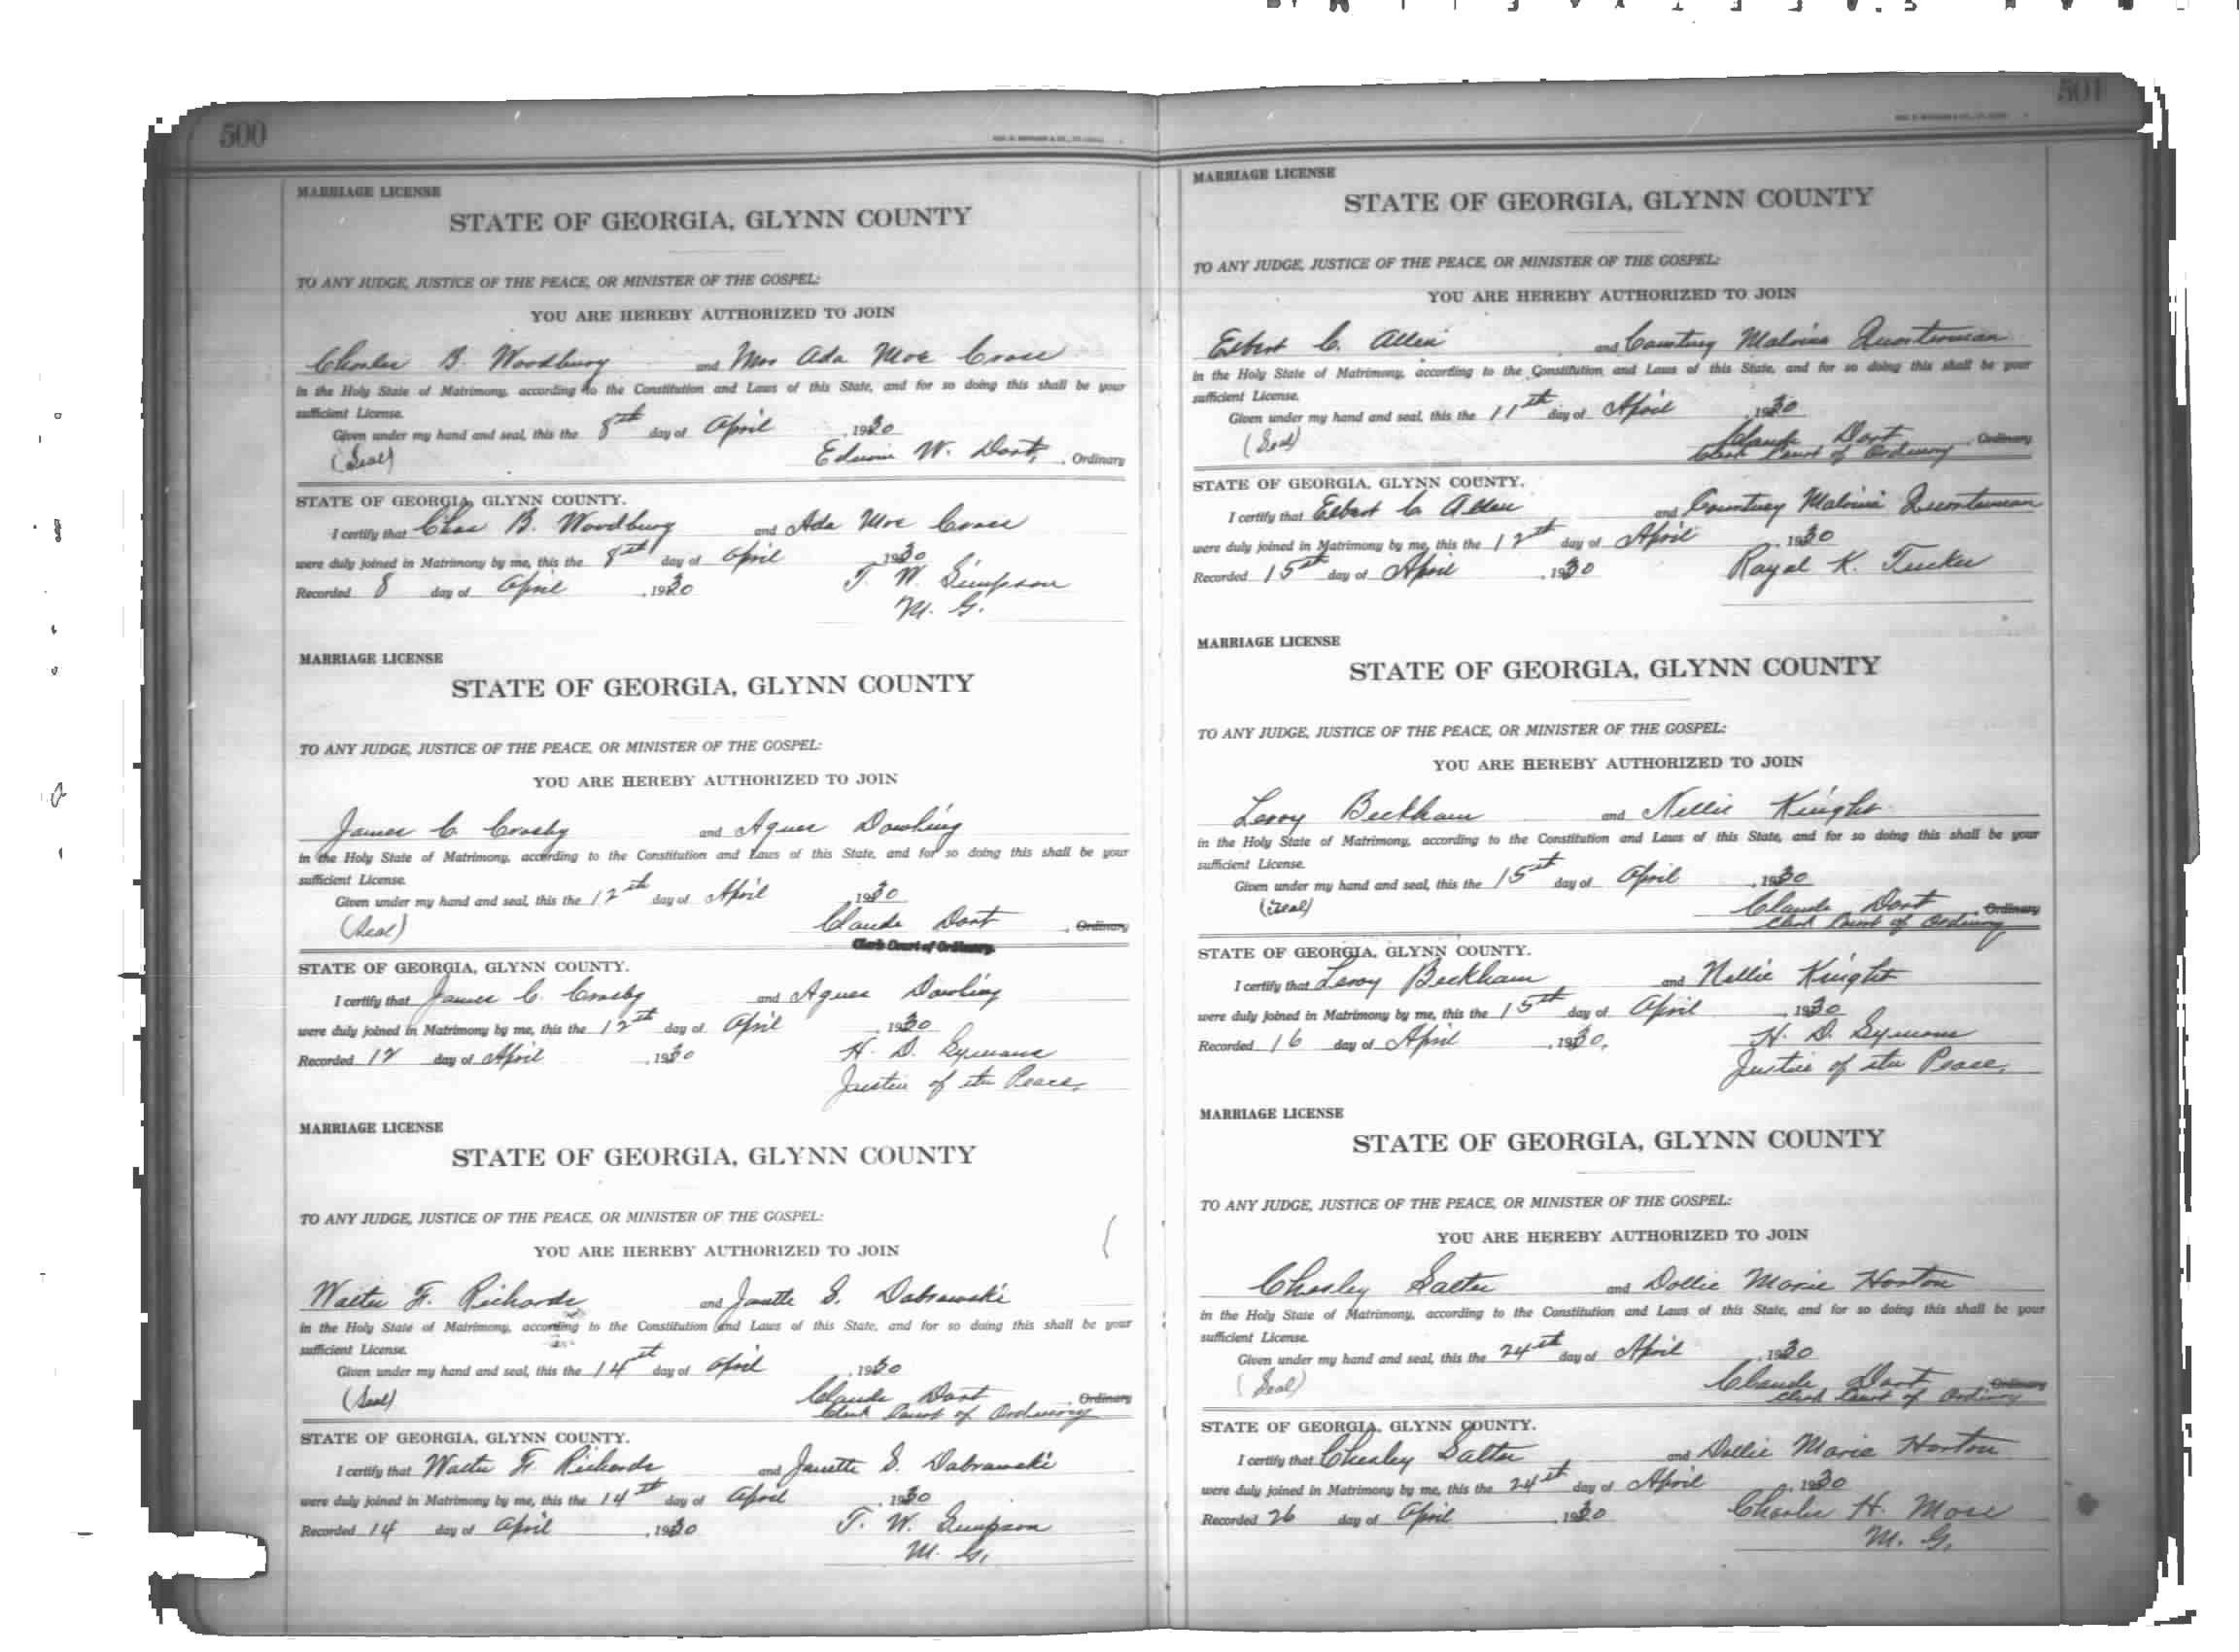 500
MARRIAGE LICENSE
STATE OF GEORGIA, GLYNN COUNTY
TO ANY JUDGE, JUSTICE OF THE PEACE, OR MINISTER OF THE GOSPEL:
YOU ARE HEREBY AUTHORIZED TO JOIN
Charles B. Woodbury and Mrs Ada Mae Cross
in the Holy State of Matrimony, according to the Constitution and Laws of this State, and for so doing this shall be your
sufficient License.
Given under my hand and seal, this the 8th day of April , 1930
(Seal) Edwin W. Dart, , Ordinary
STATE OF GEORGIA, GLYNN COUNTY.
I certify that Chas B. Woodbury and Ada Mae Cross
were duly joined in Matrimony by me, this the 8th day of April , 1930
Recorded 8 day of April , 1930 T. W. Simpson
M. G.
MARRIAGE LICENSE
STATE OF GEORGIA, GLYNN COUNTY
TO ANY JUDGE, JUSTICE OF THE PEACE, OR MINISTER OF THE GOSPEL:
YOU ARE HEREBY AUTHORIZED TO JOIN
James C. Crosby and Agnes Dowling
in the Holy State of Matrimony, according to the Constitution and Laws of this State, and for so doing this shall be your
sufficient License.
Given under my hand and seal, this the 12th day of April , 1930
(Seal) Claude Dart , Ordinary
Clerk Court of Ordinary.
STATE OF GEORGIA, GLYNN COUNTY.
I certify that James C. Crosby and Agnes Dowling
were duly joined in Matrimony by me, this the 12th day of April , 1930
Recorded 12 day of April , 1930 H. D. Symons
Justice of the Peace,
MARRIAGE LICENSE
STATE OF GEORGIA, GLYNN COUNTY
TO ANY JUDGE, JUSTICE OF THE PEACE, OR MINISTER OF THE GOSPEL:
YOU ARE HEREBY AUTHORIZED TO JOIN
Walter F. Richards and Janette S. Dabrawski
in the Holy State of Matrimony, according to the Constitution and Laws of this State, and for so doing this shall be your
sufficient License.
Given under my hand and seal, this the 14th day of April , 1930
(Seal) Claude Dart , Ordinary
Clerk Court of Ordinary
STATE OF GEORGIA, GLYNN COUNTY.
I certify that Walter F. Richards and Janette S. Dabrawski
were duly joined in Matrimony by me, this the 14th day of April , 1930
Recorded 14 day of April , 1930 T. W. Simpson
M. G.
501
MARRIAGE LICENSE
STATE OF GEORGIA, GLYNN COUNTY
TO ANY JUDGE, JUSTICE OF THE PEACE, OR MINISTER OF THE GOSPEL:
YOU ARE HEREBY AUTHORIZED TO JOIN
Elbert C. Allen and Courtney Malvina Quarterman
in the Holy State of Matrimony, according to the Constitution and Laws of this State, and for so doing this shall be your
sufficient License.
Given under my hand and seal, this the 11th day of April , 1930
(Seal) Claude Dart , Ordinary
Clerk Court of Ordinary
STATE OF GEORGIA, GLYNN COUNTY.
I certify that Elbert C. Allen and Courtney Malvina Quarterman
were duly joined in Matrimony by me, this the 12th day of April , 1930
Recorded 15th day of April , 1930 Royal K. Tucker
MARRIAGE LICENSE
STATE OF GEORGIA, GLYNN COUNTY
TO ANY JUDGE, JUSTICE OF THE PEACE, OR MINISTER OF THE GOSPEL:
YOU ARE HEREBY AUTHORIZED TO JOIN
Leroy Beckham and Nellie Knight
in the Holy State of Matrimony, according to the Constitution and Laws of this State, and for so doing this shall be your
sufficient License.
Given under my hand and seal, this the 15th day of April , 1930
(Seal) Claude Dart , Ordinary
Clerk Court of Ordinary
STATE OF GEORGIA, GLYNN COUNTY.
I certify that Leroy Beckham and Nellie Knight
were duly joined in Matrimony by me, this the 15th day of April , 1930
Recorded 16 day of April , 1930, H. D. Symons
Justice of the Peace,
MARRIAGE LICENSE
STATE OF GEORGIA, GLYNN COUNTY
TO ANY JUDGE, JUSTICE OF THE PEACE, OR MINISTER OF THE GOSPEL:
YOU ARE HEREBY AUTHORIZED TO JOIN
Chesley Salter and Dollie Marie Horton
in the Holy State of Matrimony, according to the Constitution and Laws of this State, and for so doing this shall be your
sufficient License.
Given under my hand and seal, this the 24th day of April , 1930
(Seal) Claude Dart , Ordinary
Clerk Court of Ordinary
STATE OF GEORGIA, GLYNN COUNTY.
I certify that Chesley Salter and Dollie Marie Horton
were duly joined in Matrimony by me, this the 24th day of April , 1930
Recorded 26 day of April , 1930 Charlie H. More
M. G.